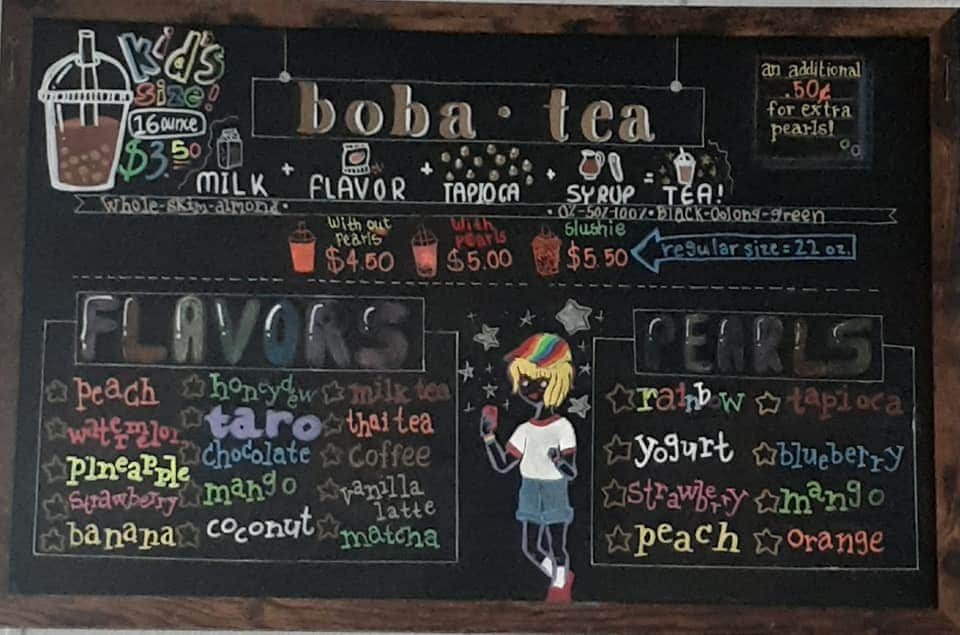 Kid's
Size!
16 ounce
$3.50
boba · tea
an additional
.50¢
for extra
pearls!
MILK + FLAVOR + TAPIOCA + SYRUP = TEA!
whole-skim-almond • • 0%-50%-100% • Black-Oolong-green
With out
pearls
$4.50
With
pearls
$5.00
Slushie
$5.50
regular size = 22 oz.
FLAVORS
peach
watermelon
pineapple
Strawberry
banana
honeydew
taro
chocolate
mango
coconut
milk tea
thai tea
coffee
vanilla
latte
matcha
PEARLS
rainbow
yogurt
strawberry
peach
tapioca
blueberry
mango
orange